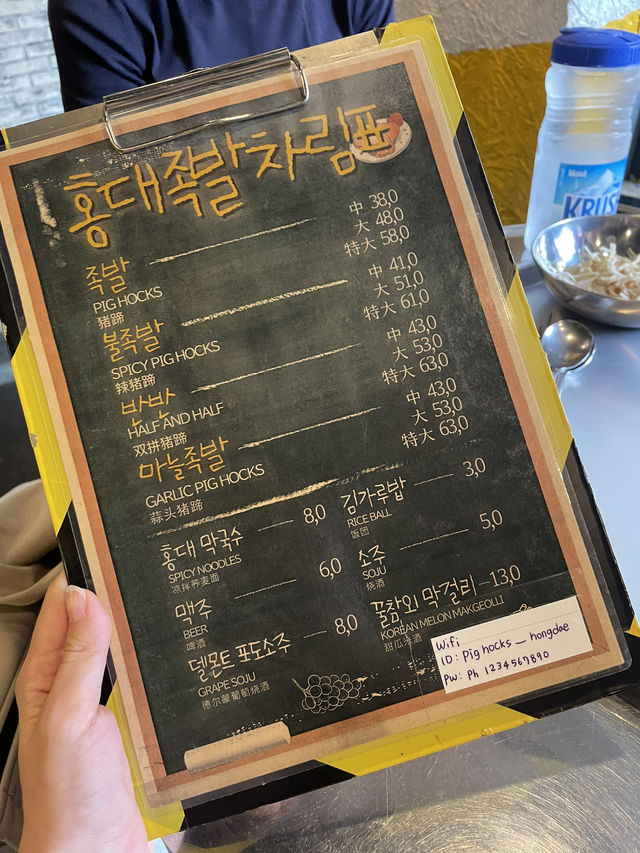 홍대족발 차림표
족발
PIG HOCKS
猪蹄
中 38,0
大 48,0
特大 58,0
불족발
SPICY PIG HOCKS
辣猪蹄
中 41,0
大 51,0
特大 61,0
반반
HALF AND HALF
双拼猪蹄
中 43,0
大 53,0
特大 63,0
마늘족발
GARLIC PIG HOCKS
蒜头猪蹄
中 43,0
大 53,0
特大 63,0
홍대 막국수 8,0
SPICY NOODLES
凉拌荞麦面
맥주 6,0
BEER
啤酒
델몬트 포도소주 8,0
GRAPE SOJU
德尔蒙葡萄烧酒
김가루밥 3,0
RICE BALL
饭团
소주 5,0
SOJU
烧酒
꿀참외 막걸리 13,0
KOREAN MELON MAKGEOLLI
甜瓜米酒
Wifi
ID: Pig hocks _ hongdae
PW: Ph 1234567890
KRUS